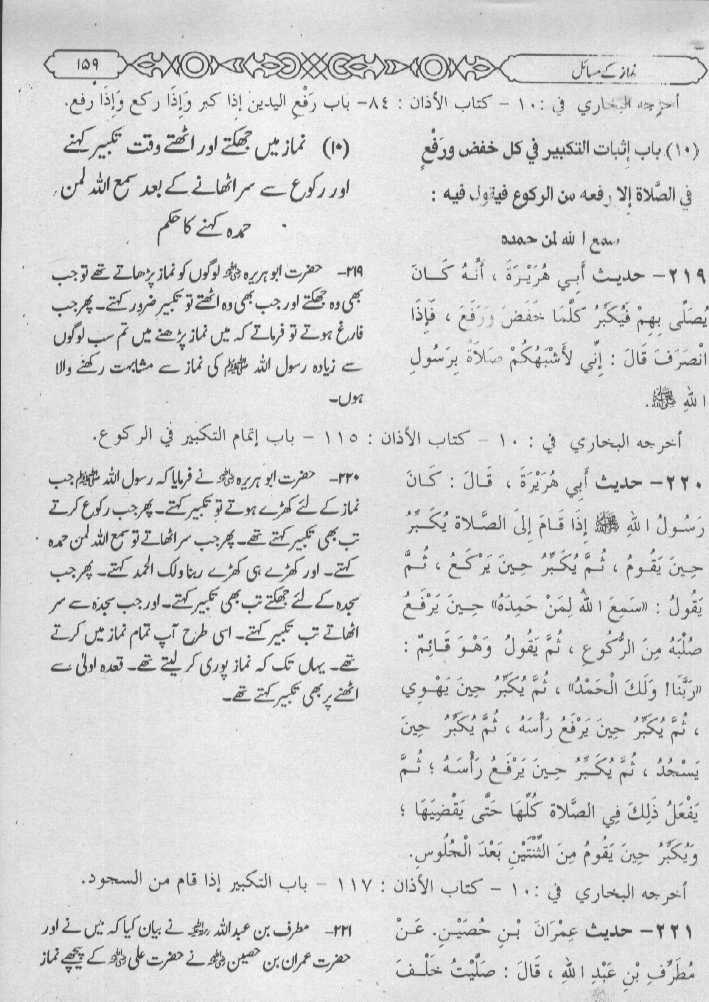 نماز کے مسائل
۱۵۹
أخرجه البخاري في : ١٠ - كتاب الأذان : ٨٤- باب رَفْع اليدين إذا كبر وَإِذَا ركع وَإِذَا رفع.
(١٠) باب إثبات التكبير في كل خفض ورَفْعٍ
في الصَّلاة إلا رفعه من الركوع فيقول فيه :
سمع الله لمن حمده
٢١٩- حديث أَبِي هُرَيْرَةَ ، أَنَّهُ كَــانَ
يُصَلِّى بِهِمْ فَيُكَبِّرُ كُلَّمَا خَفَضَ وَرَفَعَ ، فَإِذَا
انْصَرَفَ قَالَ : إِنِّي لأَشْبَهُكُمْ صَلاَةً بِرَسُولِ
اللهِ ﷺ.
(۱۰) نماز میں جھکتے اور اٹھتے وقت تکبیر کہنے
اور رکوع سے سر اٹھانے کے بعد سمع اللہ لمن
حمدہ کہنے کا حکم
۲۱۹- حضرت ابو ہریرہ رضی اللہ عنہ لوگوں کو نماز پڑھاتے تھے تو جب
بھی وہ جھکتے اور جب بھی وہ اٹھتے تو تکبیر ضرور کہتے۔ پھر جب
فارغ ہوتے تو فرماتے کہ میں نماز پڑھنے میں تم سب لوگوں
سے زیادہ رسول اللہ ﷺ کی نماز سے مشابہت رکھنے والا
ہوں۔
أخرجه البخاري في : ١٠ - كتاب الأذان : ١١٥ - باب إتمام التكبير في الركوع.
٢٢٠- حديث أَبِي هُرَيْرَةَ ، قَـالَ : كَــانَ
رَسُولُ اللهِ ﷺ إِذَا قَامَ إِلَى الصَّلاة يُكَبِّرُ
حِينَ يَقُومُ ، ثُمَّ يُكَبِّرُ حِينَ يَرْكَعُ ، ثُـمَّ
يَقُولُ : «سَمِعَ اللهُ لِمَنْ حَمِدَهُ» حِينَ يَرْفَعُ
صُلْبَهُ مِنَ الرُّكُوعِ ، ثُمَّ يَقُولُ وَهْوَ قَـائِمٌ :
«رَبَّنَا! وَلَكَ الْحَمْدُ» ، ثُمَّ يُكَبِّرُ حِينَ يَهْوِي
، ثُمَّ يُكَبِّرُ حِينَ يَرْفَعُ رَأْسَهُ ، ثُمَّ يُكَبِّرُ حِينَ
يَسْجُدُ ، ثُمَّ يُكَبِّرُ حِينَ يَرْفَعُ رَأْسَهُ ؛ ثُـمَّ
يَفْعَلُ ذَلِكَ فِي الصَّلاة كُلِّهَا حَتَّى يَقْضِيَهَا ؛
وَيُكَبِّرُ حِينَ يَقُومُ مِنَ الثِّنْتَيْنِ بَعْدَ الْجُلُوسِ.
۲۲۰- حضرت ابو ہریرہ رضی اللہ عنہ نے فرمایا کہ رسول اللہ ﷺ جب
نماز کے لئے کھڑے ہوتے تو تکبیر کہتے۔ پھر جب رکوع کرتے
تب بھی تکبیر کہتے تھے۔ پھر جب سر اٹھاتے تو سمع اللہ لمن حمدہ
کہتے۔ اور کھڑے ہی کھڑے ربنا ولک الحمد کہتے۔ پھر جب
سجدہ کے لئے جھکتے تب بھی تکبیر کہتے۔ اور جب سجدہ سے سر
اٹھاتے تب تکبیر کہتے۔ اسی طرح آپ تمام نماز میں کرتے
تھے۔ یہاں تک کہ نماز پوری کر لیتے تھے۔ قعدہ اولیٰ سے
اٹھنے پر بھی تکبیر کہتے تھے۔
أخرجه البخاري في : ١٠ - كتاب الأذان : ١١٧ - باب التكبير إذا قام من السجود.
٢٢١- حديث عِمْرَانَ بْنِ حُصَيْنٍ. عَنْ
مُطَرِّفِ بْنِ عَبْدِ اللهِ ، قَالَ : صَلَّيْتُ خَلْـفَ
۲۲۱- مطرف بن عبداللہ رحمہ اللہ نے بیان کیا کہ میں نے اور
حضرت عمران بن حصین رضی اللہ عنہ نے حضرت علی رضی اللہ عنہ کے پیچھے نماز